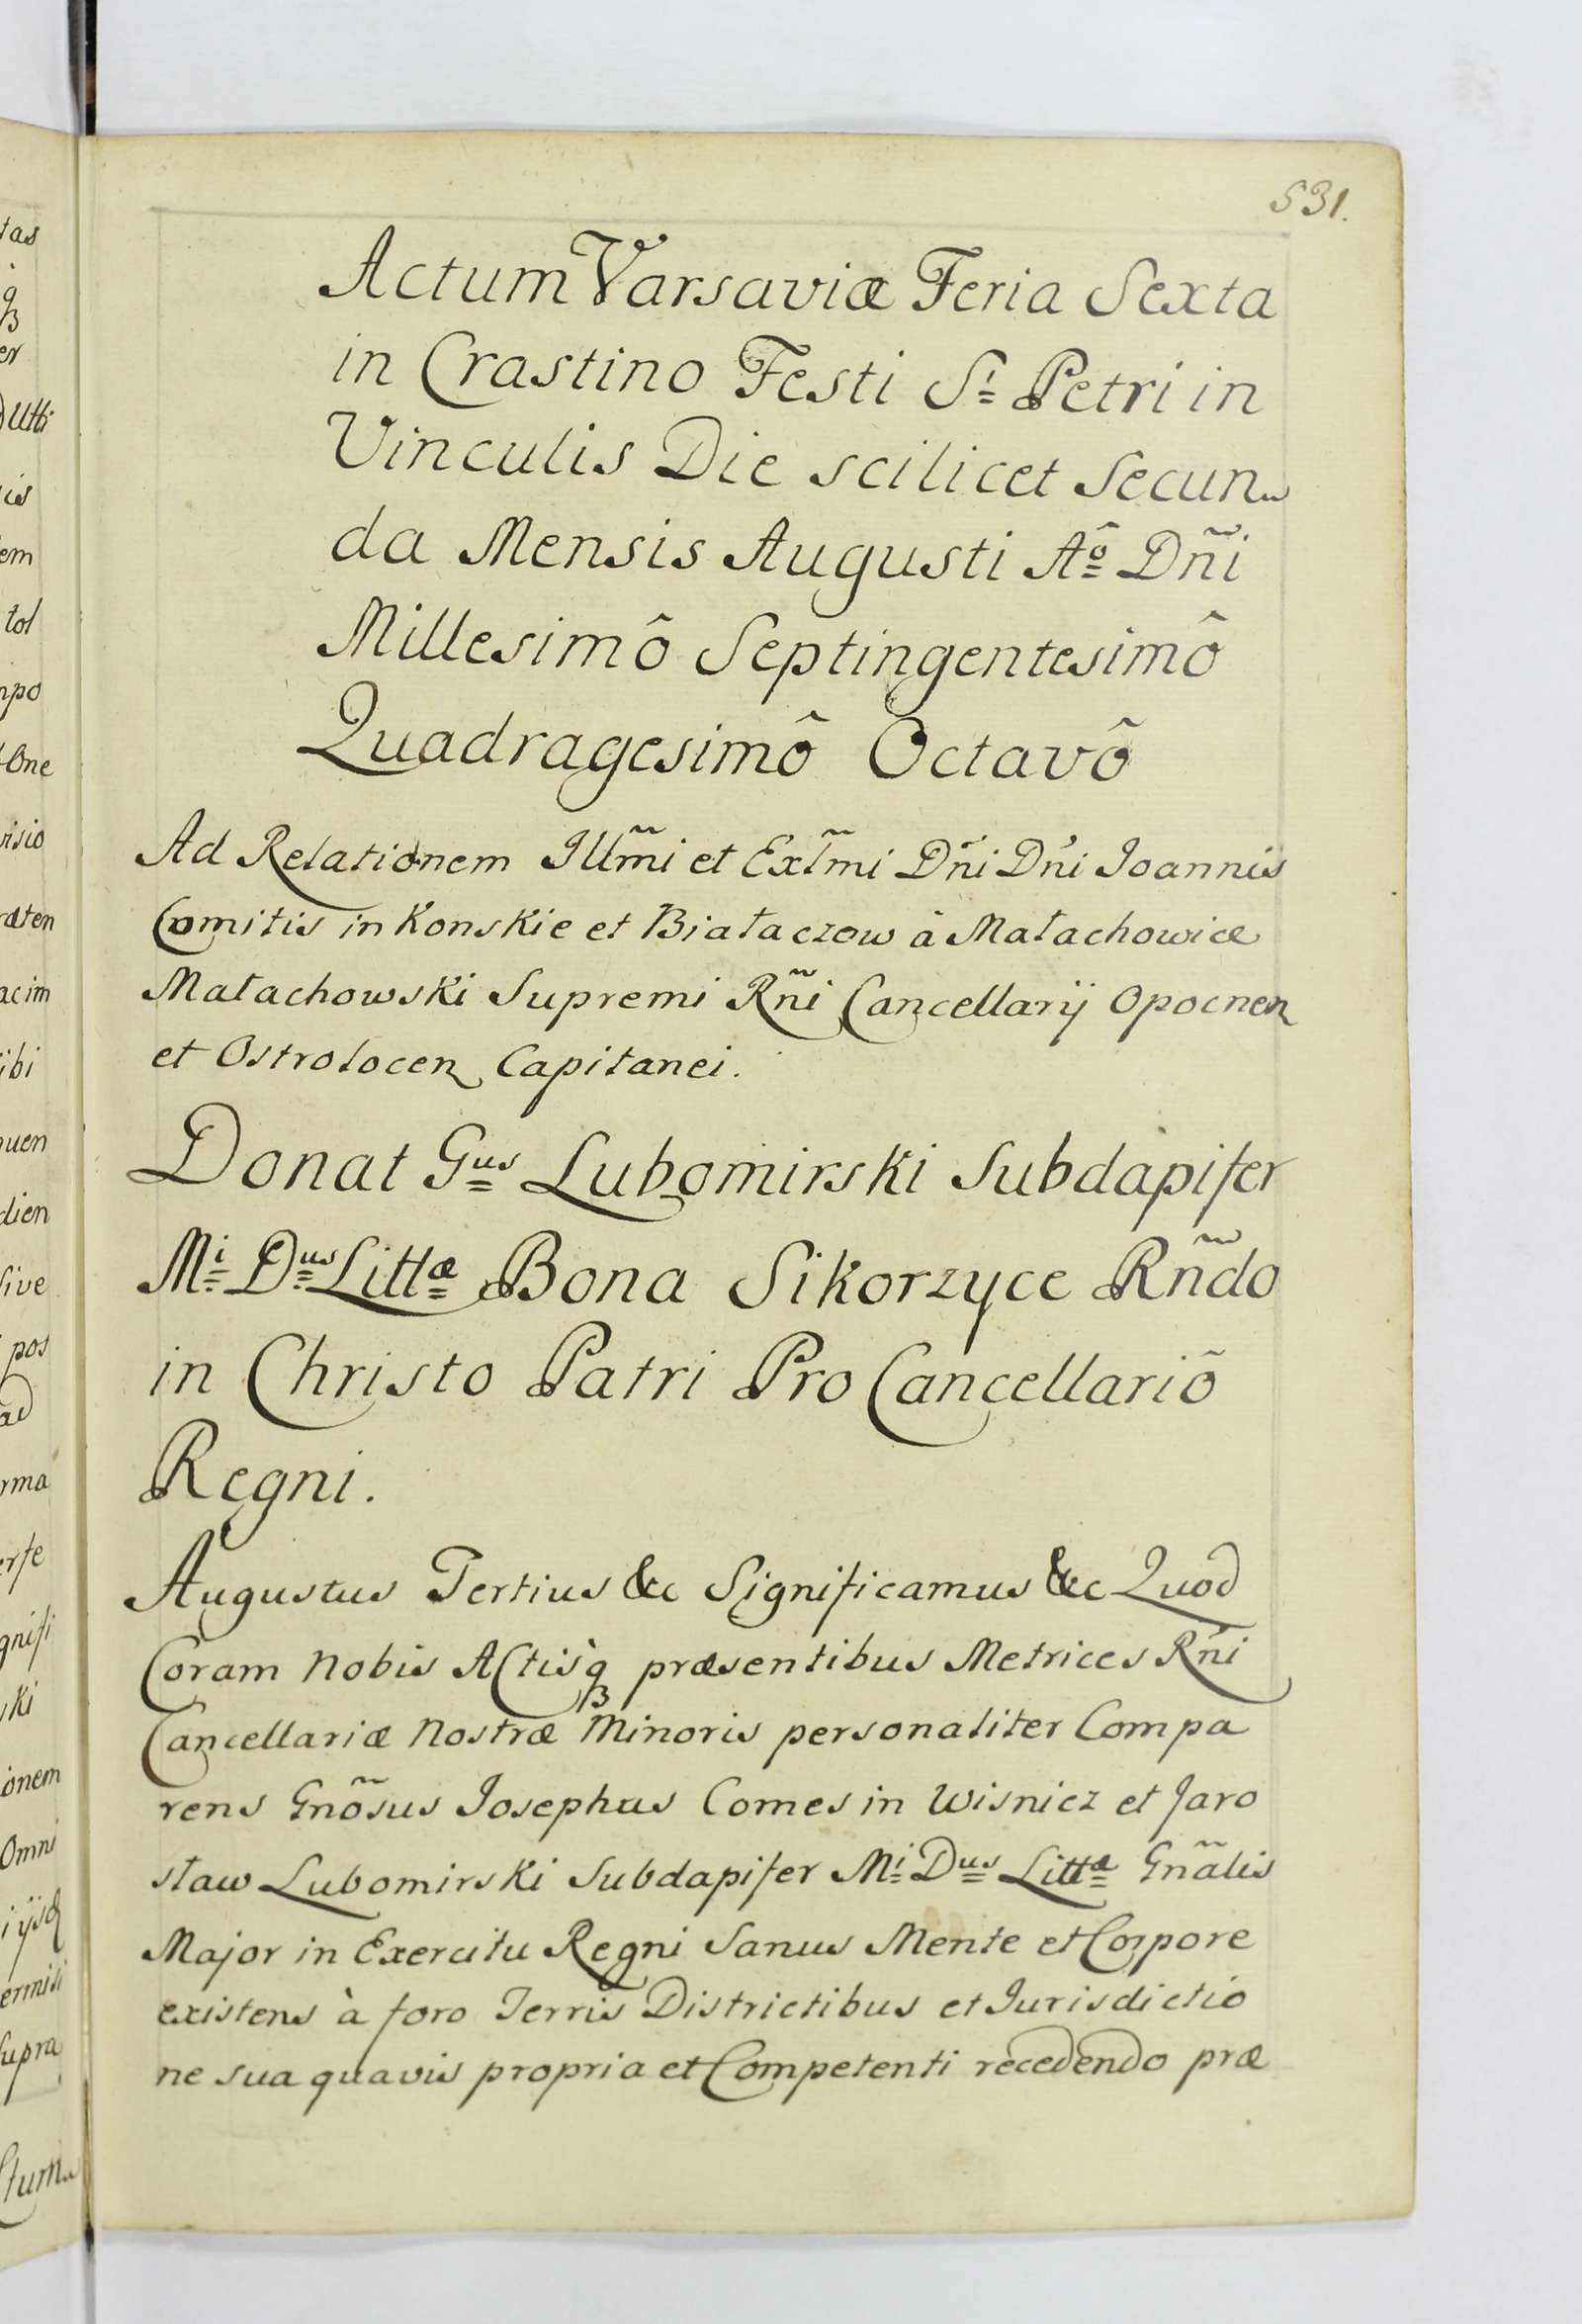 531.
Actum Varsaviæ Feria Sexta
in Crastino Festi Sᵗⁱ Petri in
Vinculis Die scilicet Secun
da Mensis Augusti Aô Dñi
Millesimô Septingentesimô
Quadragesimô Octavô
Ad Relationem Illm̃i et Exlm̃i Dñi Dñi Joannis
Comitis in Konskie et Białaczow à Małachowice
Małachowski Supremi Rñi Cancellarij Opocnen
et Ostrołocen Capitanei.
Donat Gᵘˢ Lubomirski Subdapifer
Mⁱ Dᵘˢ Littæ Bona Sikorzyce Rñdo
in Christo Patri Pro Cancellariõ
Regni.
Augustus Tertius &c Significamus &c Quod
Coram Nobis Actisq præsentibus Metrices Rñi
Cancellariæ Nostræ Minoris personaliter Compa
rens Gnõsus Josephus Comes in Wisnicz et Jaro
sław Lubomirski Subdapifer Mⁱ Dᵘˢ Littæ Gnãlis
Major in Exercitu Regni Sanus Mente et Corpore
existens à foro Terris Districtibus et Jurisdictio
ne sua quavis propria et Competenti recedendo præ